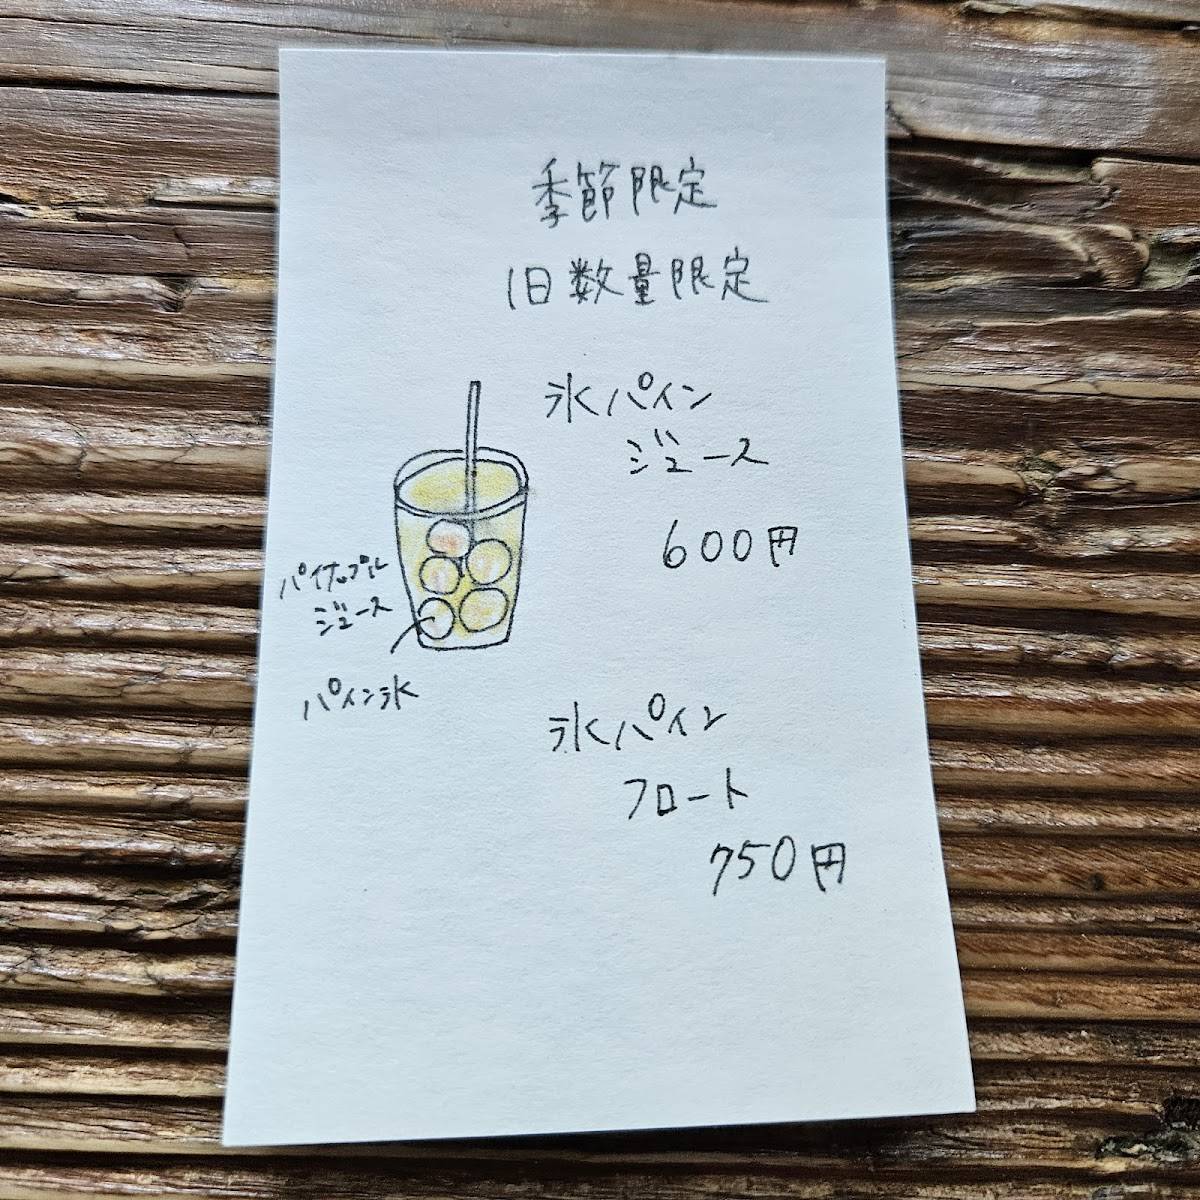 季節限定
1日数量限定
氷パイン
ジュース
600円
パイナップル
ジュース
パイン氷
氷パイン
フロート
750円